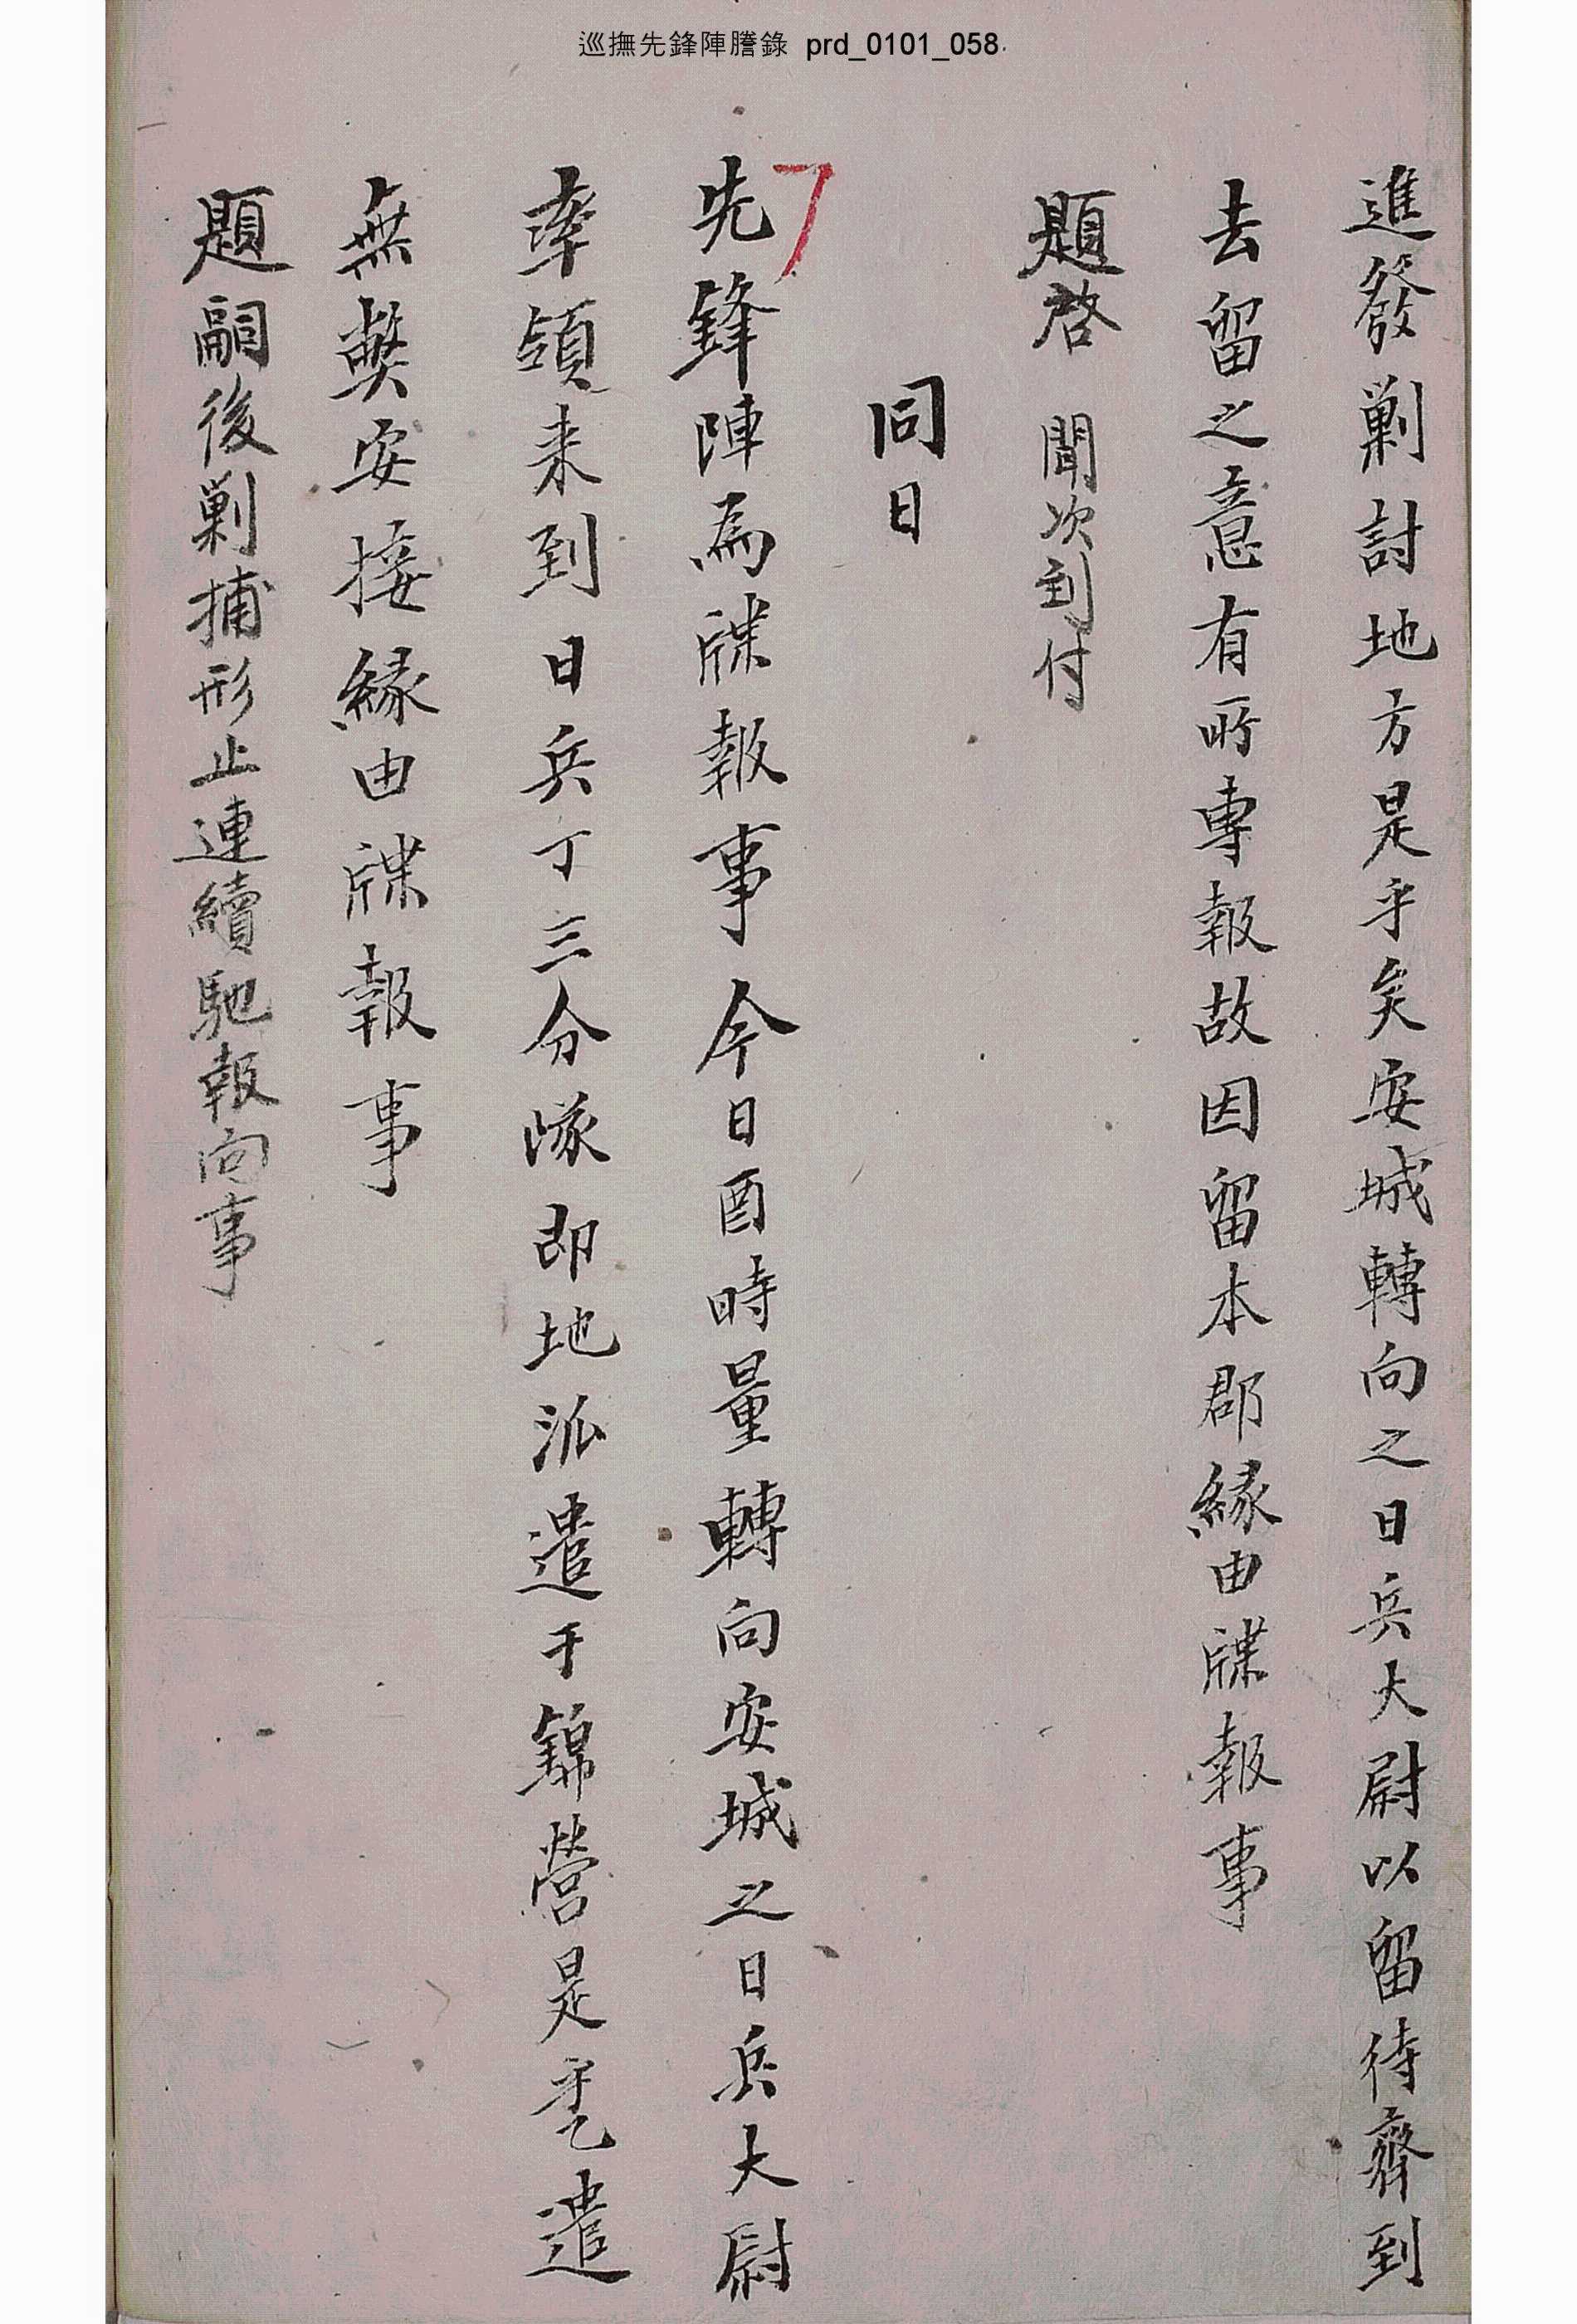 巡撫先鋒陣謄錄 prd_0101_058
進發剿討地方是乎矣安城轉向之日兵大尉以留待齊到
去留之意有所專報故因留本郡緣由牒報事
題啓 聞次到付
同日
先鋒陣爲牒報事今日酉時量轉向安城之日兵大尉
率領来到日兵丁三分隊即地派遣于錦營是乎乙遣
無弊安接緣由牒報事
題嗣後剿捕形止連續馳報向事